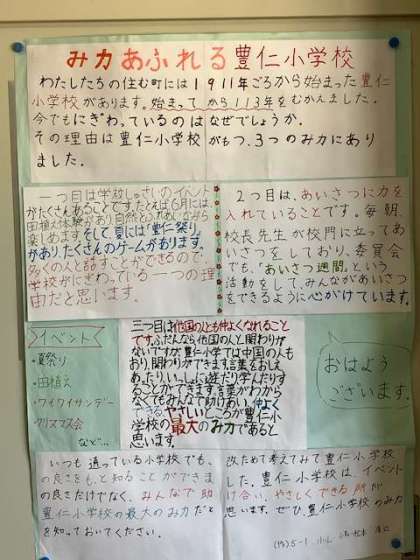 み力あふれる豊仁小学校
わたしたちの住む町には1911年ごろから始まった豊仁
小学校があります。始まってから113年をむかえました。
今でもにぎわっているのはなぜでしょうか。
その理由は豊仁小学校がもつ、3つのみ力にあり
ました。
一つ目は学校しゅさいのイベント
がたくさんあることです。たとえば6月には
田植え体験があり自然とふれあいながら
楽しめます。そして夏には「豊仁祭り」
があり、たくさんのゲームがあります。
多くの人と話すことができるので、
学校がにぎわっている一つの理
由だと思います。
2つ目は、あいさつに力を
入れていることです。毎朝、
校長先生が校門に立ってあ
いさつをしており、委員会
でも、「あいさつ週間」という
活動をして、みんながあいさつ
をできるように心がけています。
イベント
・夏祭り
・田植え
・ワイワイサンデー
・クリスマス会
など…
三つ目は他国の人とも仲よくなれること
です。ふだんなら他国の人と関わりが
ないですが、豊仁小学では中国の人も
おり、関わりができます。言葉をおしえ
あったり、いっしょに遊んだり学んだりす
ることができます。言葉がわから
なくてもみんなで助けあい、仲よく
できる、やさしいところが豊仁小
学校の最大のみ力であると
思います。
おはよう
ございます。
いつも通っている小学校でも、改めて考えてみて豊仁小
の良さをもっと知ることができました。豊仁小学校は、イベント
の良さだけでなく、みんなで助け合い、やさしくできる所が
豊仁小学校の最大のみ力だと思います。ぜひ、豊仁小学校のみ力
を知っておいてください。